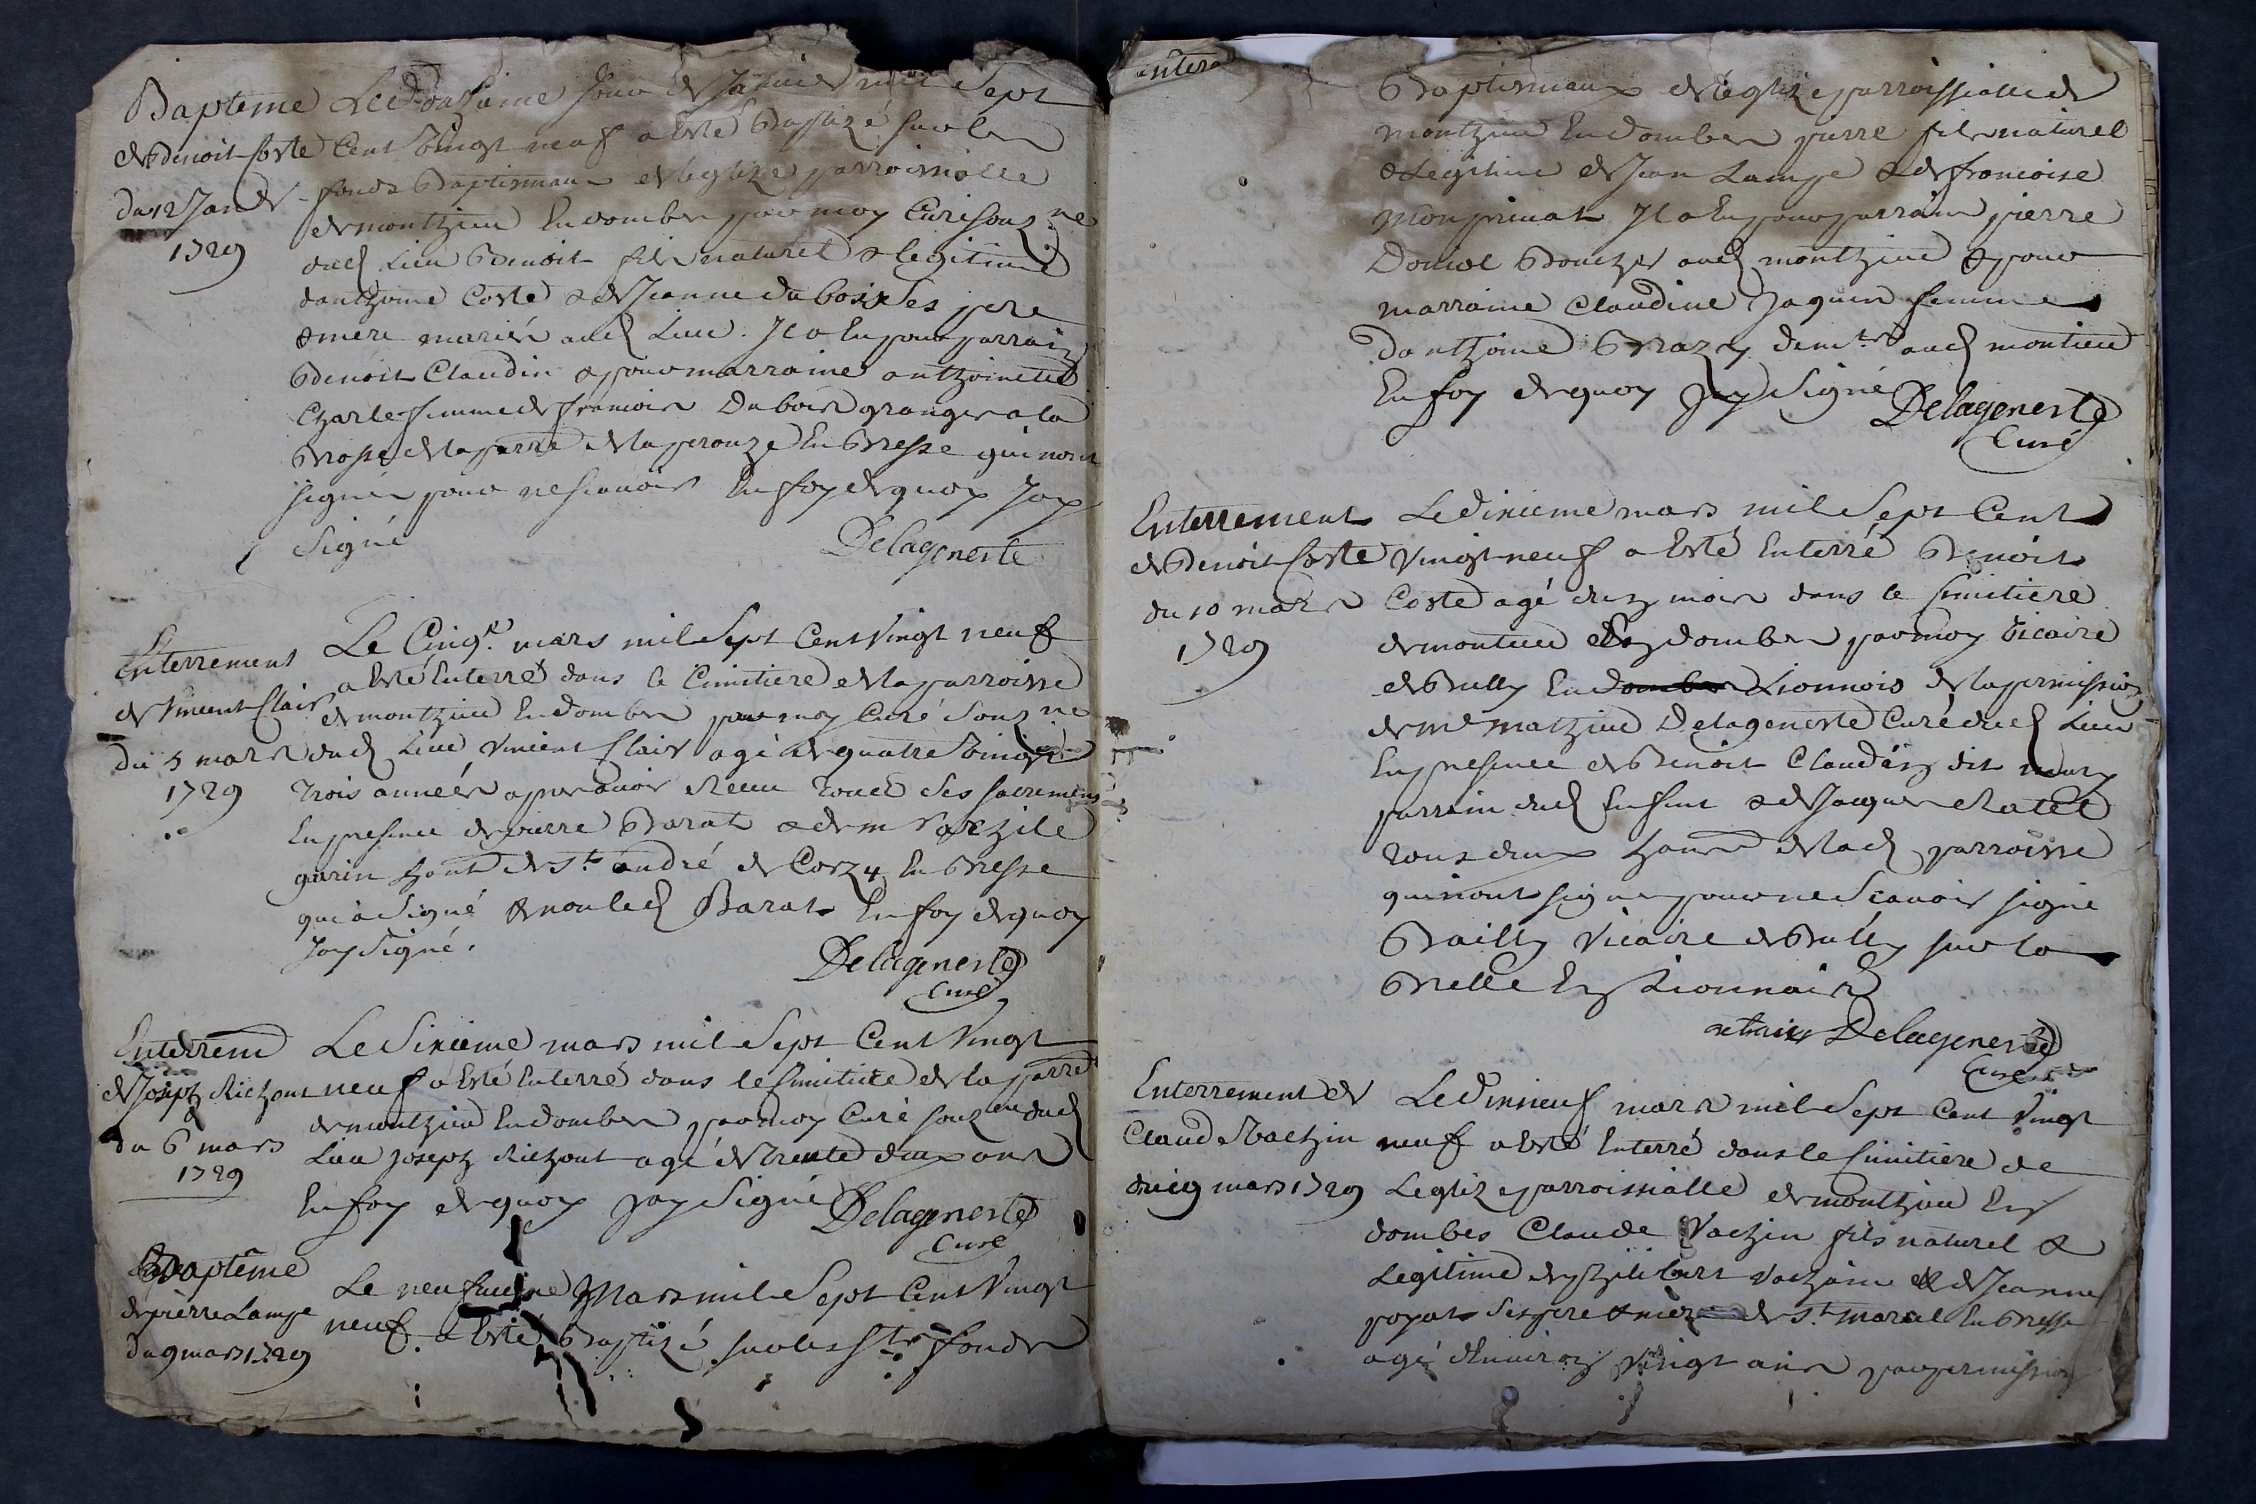 Bapteme
de Benoit Coste
du 12 Janv.
1729
Le Douzieme Jour de Janvier mil Sept
Cent Vingt neuf a Esté Baptizé sur les
fonds Baptismaux de leglize parroissialle
de montzieu En dombes par moy Curé souz.né
dud Lieu Benoit fils naturel & legitime
danthoine Coste & de Jeanne dubois ses pere
& mere mariés aud Lieu. Jl a Eu pour parrain
Benoit Claudin & pour marraine anthoinette
Charle femme de francois Dubois granger a la
de la parre de la perouze En Bresse qui n'ont
signés pour ne scavoir En foy de quoy Jay
Signé
Delageneste
Enterrement
de Vincent Clair
du 5 mars
1729
Le Cinq.e mars mil Sept Cent Vingt neuf
a Esté Enterré dans le Cimitiere de la parroisse
de montzieu En dombes par moy Curé Souz.né
dud Lieu Vincent Clair agé de quatre Vingt
trois années apres avoir Receu tous Ses Sacremens
En presence de pierre Barat & de m
gurin de St. andré de Corzy En Bresse
qui a Signé & non led Barat En foy de quoy
Jay Signé.
Delageneste
Curé
Enterrem
de Joseph Richont
du 6 mars
1729
Le Sixieme mars mil Sept Cent Vingt
neuf a Esté Enterré dans le Cimitiere de la parre
de montzieu En dombes par moy Curé souz.né dud
Lieu Joseph Richont agé de Trente deux ans
En foy de quoy Jay Signé
Delageneste
Curé
Baptême
de pierre Lampe
du 9 mars 1729
Le neufvieme Mars mil Sept Cent Vingt
neuf. a Esté Baptizé sur les Sts fonds
Baptismaux de leglize parroissialle de
montzieu En dombes pierre fils naturel
& Legitime de Jean Lampe & de francoise
Monpinat Jl a Eu pour parrain pierre
Bouchz aud montzieu & pour
marraine Claudine Jaquin femme
danthoine Brazy demte aud montieu
En foy de quoy Jay Signé
Delageneste
Curé
Enterrement
de Benoit Coste
du 10 mars
1729
Le Dixieme mars mil Sept Cent
Vingt neuf a Esté Enterré Benoit
Coste agé deux mois dans le Cimitiere
de montieu En dombes par moy Vicaire
de Bully En dombes Lionnois de la permission
de mre matzieu Delageneste Curé dud Lieu
En presence de Benoit Claudin dit
parrain dud Enfant & de Jacques Ratet
tous deux de lad parroisse
qui n'ont signé pour ne Scavoir signé
Bailly Vicaire de Bully sur la
Brelle En Lionnois
Delageneste
Curé
Enterrement de
Claude Vachin
du 19 mars 1729
Le Dixneuf mars mil Sept Cent Vingt
neuf a Esté Enterré dans le Cimitiere de
Leglize parroissialle de montzieu En
dombes Claude Vachin fils naturel &
Legitime de philibert Vachin & de Jeanne
poyat Ses pere & mere de St. marcel En Bresse
agé denviron Vingt ans par permission